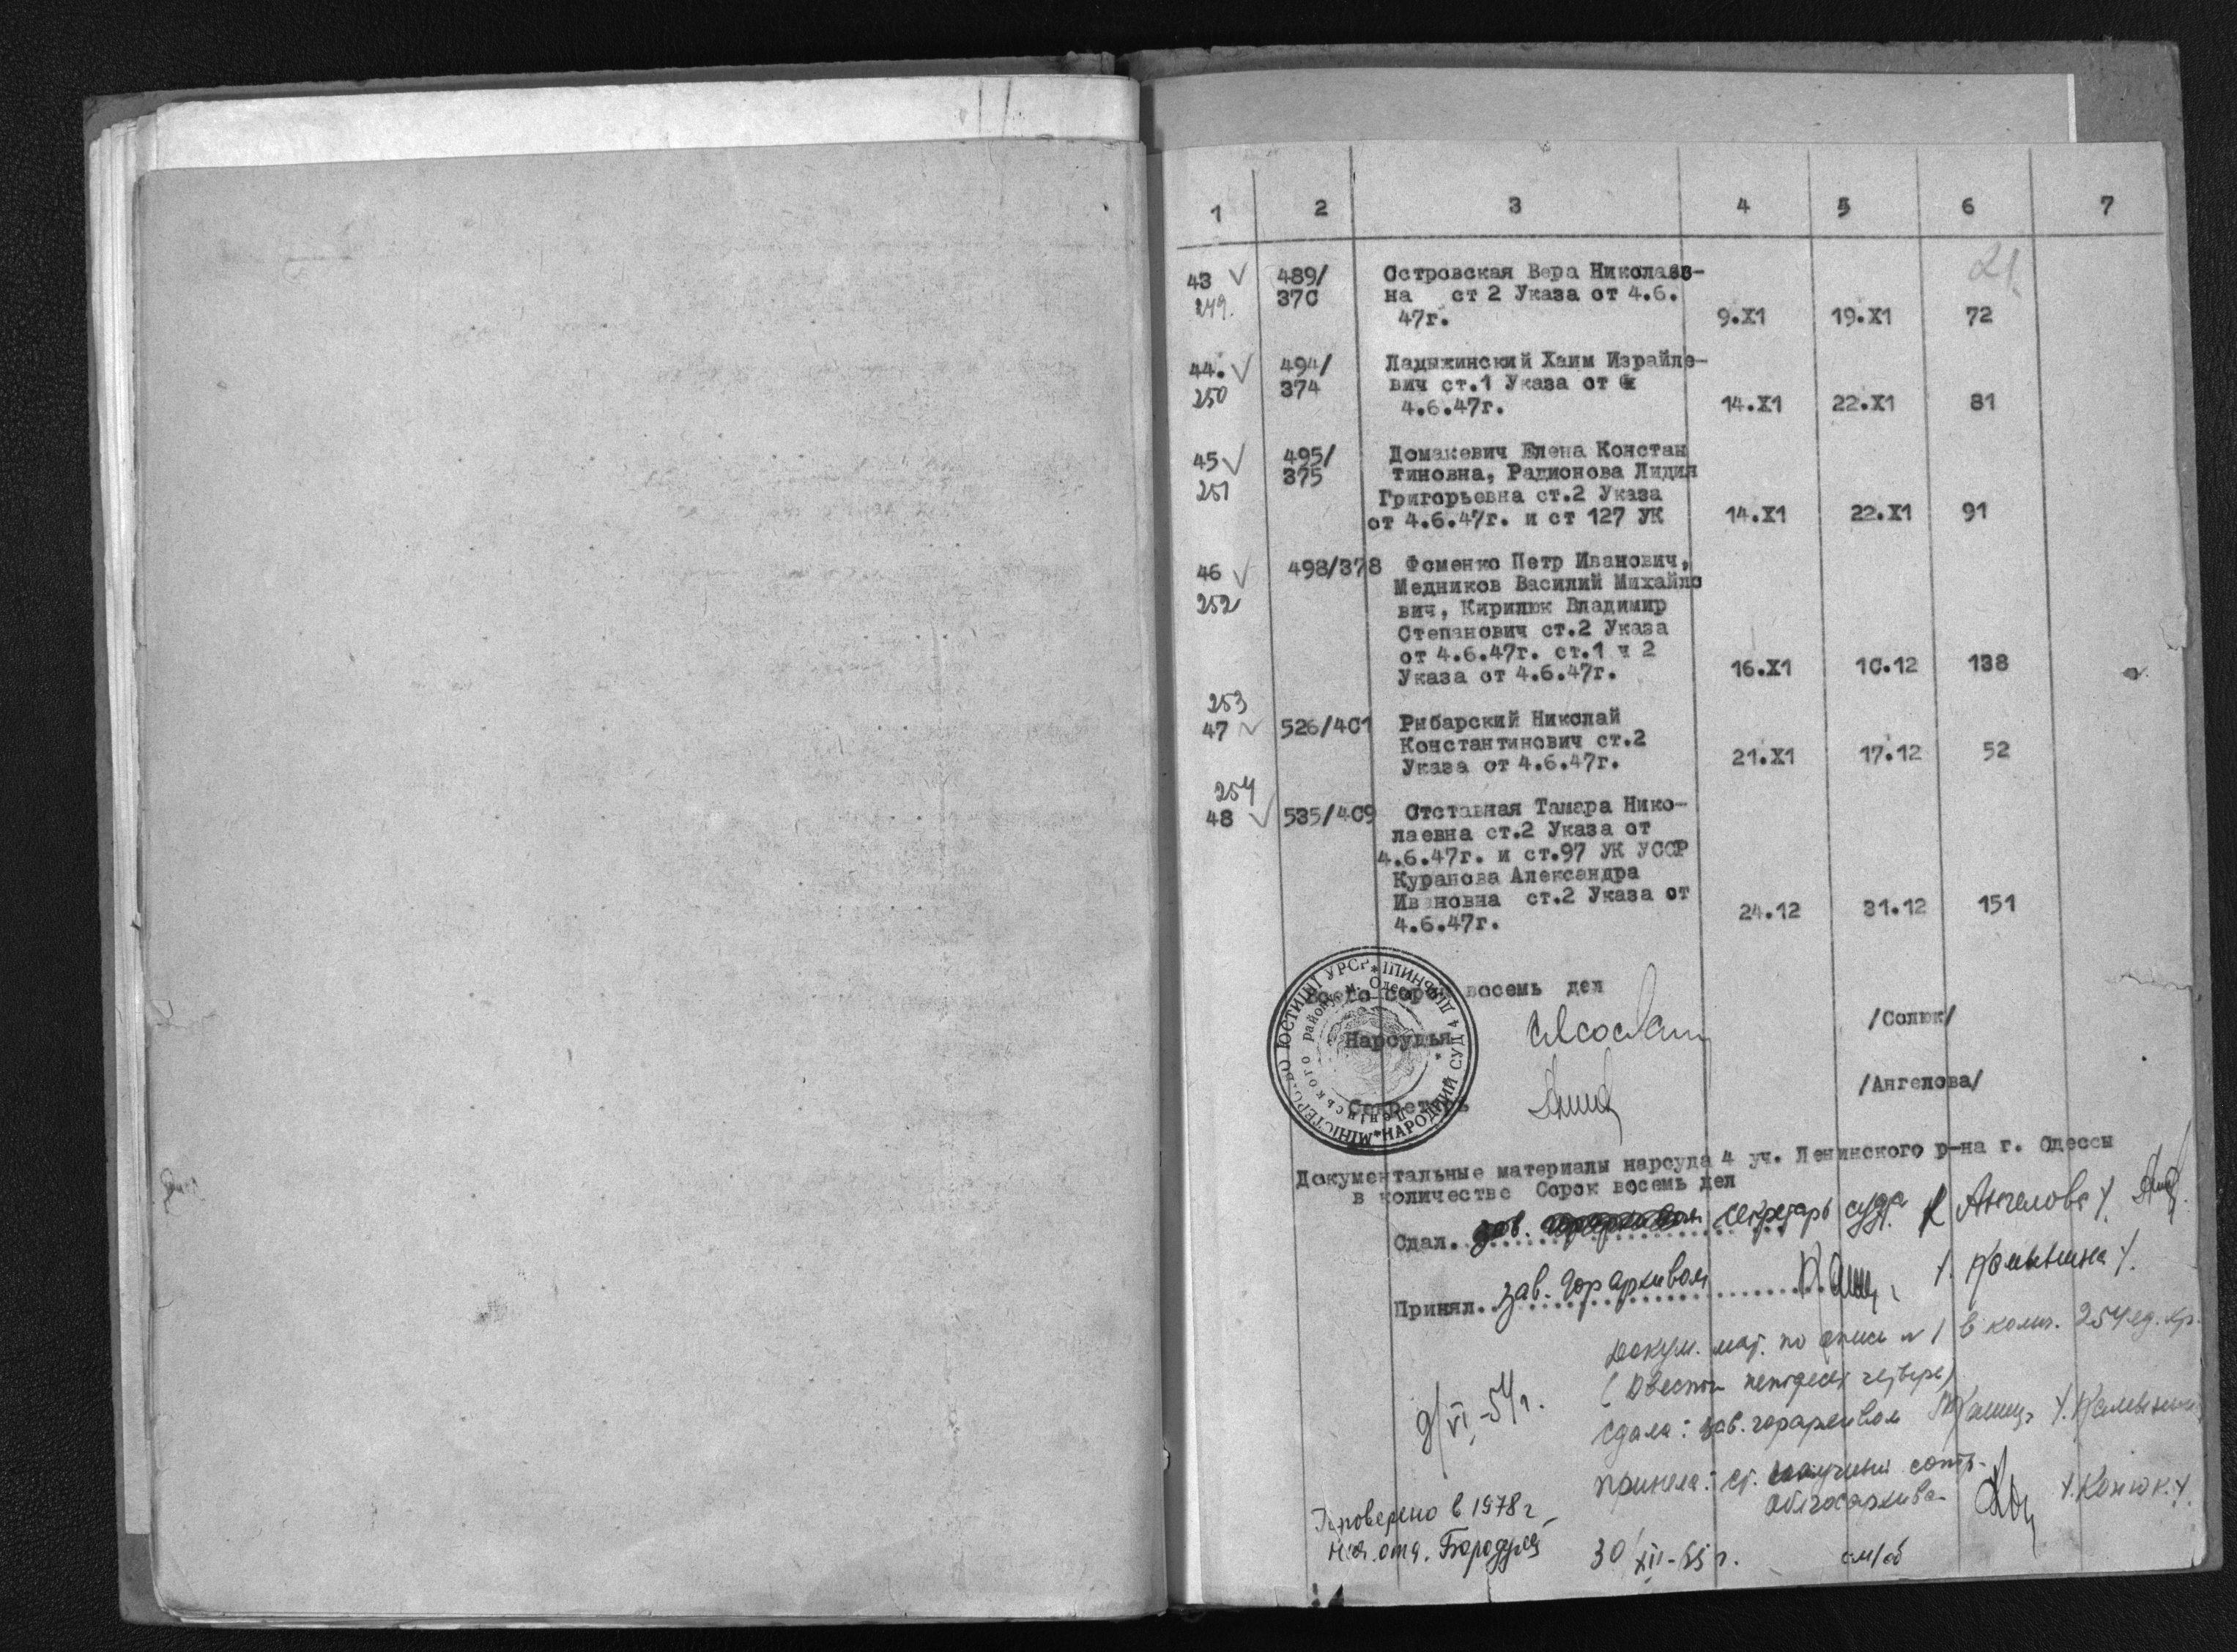 1 2 3 4 5 6 7
21
43 489/ Островская Вера Николаев-
249. 37С на ст 2 Указа от 4.6.
47г. 9.Х1 19.Х1 72
44. 494/ Ладыжинский Хаим Израйле-
250 374 вич ст.1 Указа от
4.6.47г. 14.Х1 22.Х1 81
45 495/ Домакевич Елена Констан
251 375 тиновна, Радионова Лидия
Григорьевна ст.2 Указа
от 4.6.47г. и ст 127 УК 14.Х1 22.Х1 91
46 498/378 Фоменко Петр Иванович,
252 Медников Василий Михайло
вич, Кирилюк Владимир
Степанович ст.2 Указа
от 4.6.47г. ст.1 ч 2
Указа от 4.6.47г. 16.Х1 1С.12 138
253
47 526/4С1 Рыбарский Николай
Константинович ст.2
Указа от 4.6.47г. 21.Х1 17.12 52
254
48 535/4С9 Отставная Тамара Нико-
лаевна ст.2 Указа от
4.6.47г. и ст.97 УК УССР
Куранова Александра
Ивановна ст.2 Указа от
4.6.47г. 24.12 31.12 151
Всего сорок восемь дел
Нарсудья /Солюк/
Секретарь /Ангелова/
МІНІСТЕРСТВО ЮСТИЦІЇ УРСР * НАРОДНИЙ СУД 4 ДІЛЬНИЦІ
Ленінського району м. Одеси
Документальные материалы нарсуда 4 уч. Ленинского р-на г. Одессы
в количестве Сорок восемь дел
Сдал. зав. секретарь суда /Ангелова/
Принял. зав. горархивом /Камынина/.
Докум. мат. по описи № 1 в колич. 254 ед. хр.
(Двести пятьдесят четыре)
9/VI-54г.
Сдала: зав. горархивом /Камынина/
Приняла: ст. научный сотр.
облгосархива /Конюк/.
Проверено в 1978 г
нач. отд.
30/XII-55г.